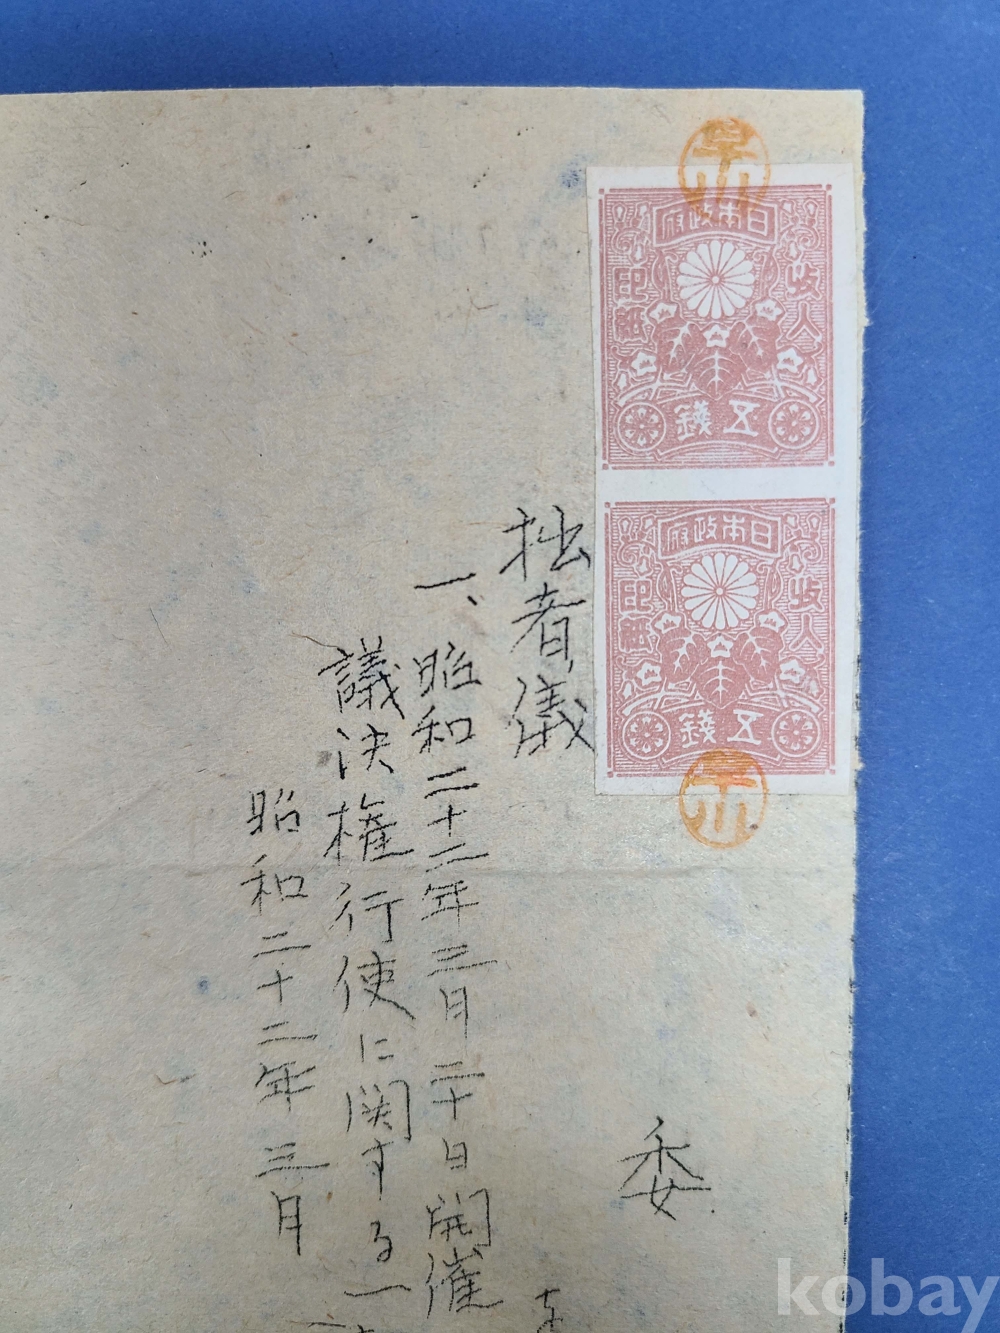 早川
日本政府
收入
印紙
五錢
日本政府
收入
印紙
五錢
早川
委
拙者儀
一、昭和二十二年三月二十日開催
議決権行使に関する一
昭和二十二年三月
kobay